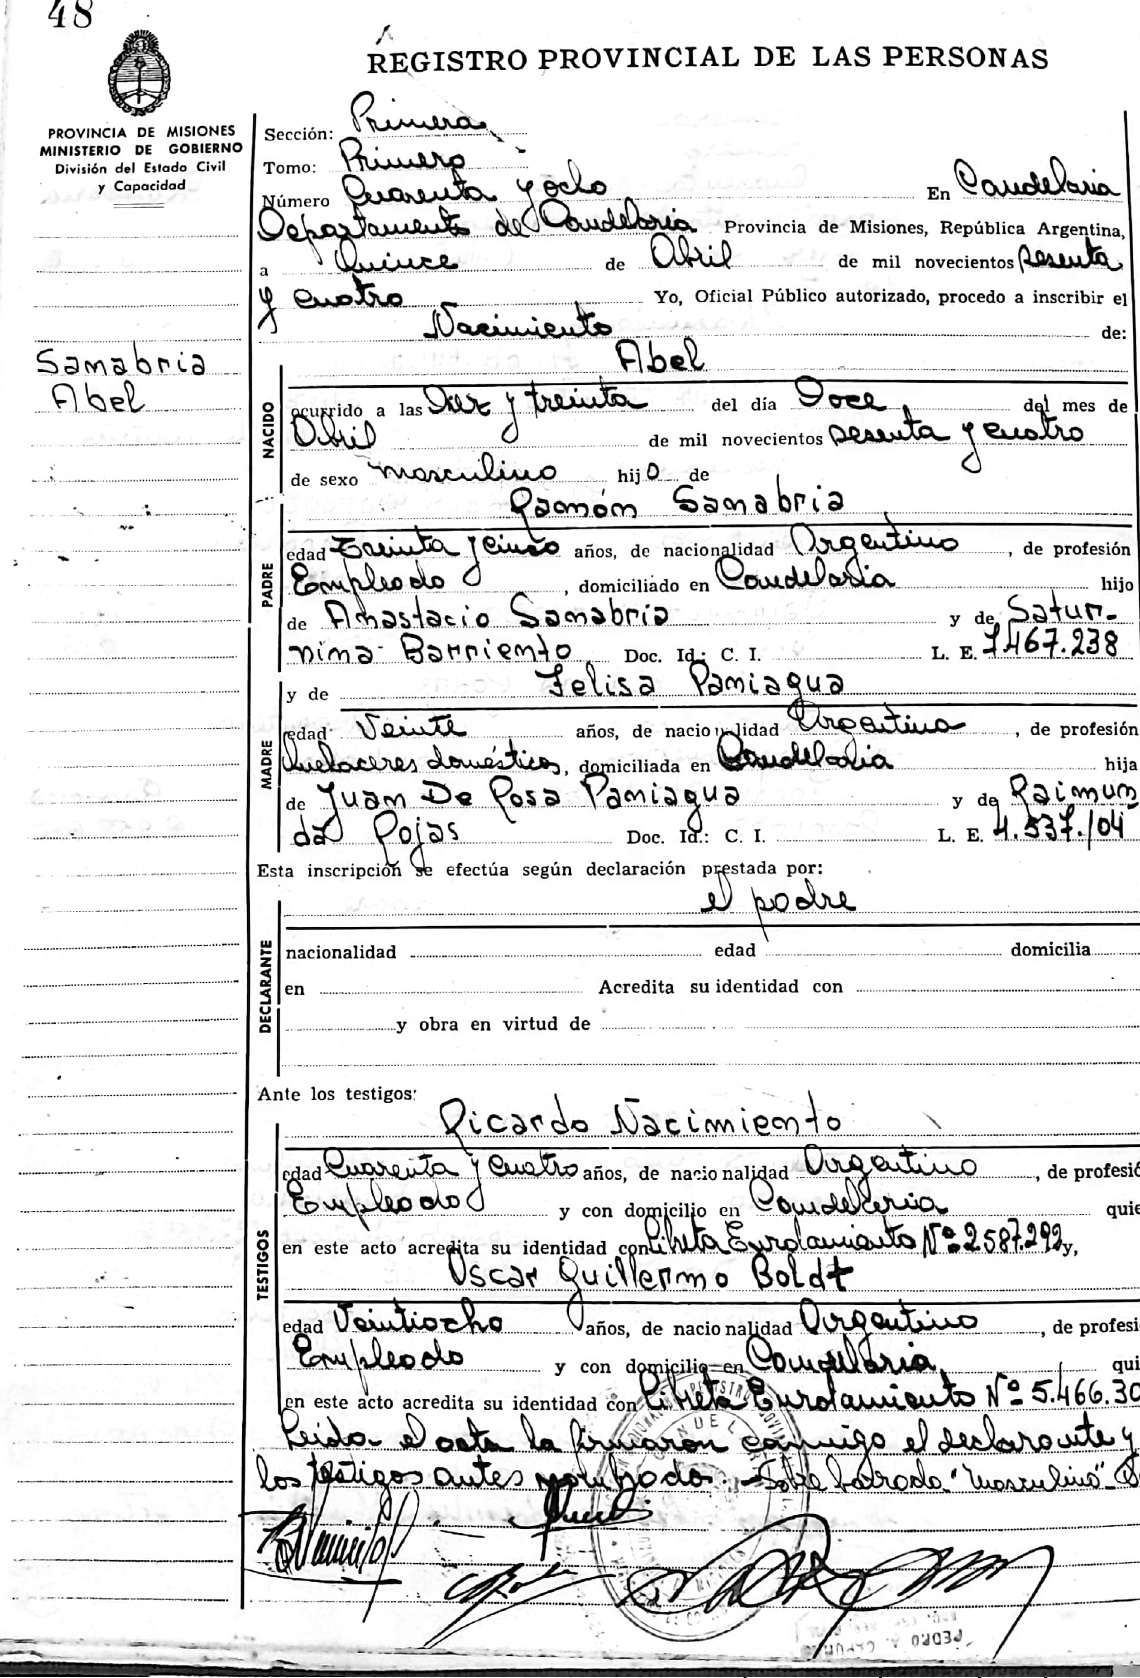 48
REGISTRO PROVINCIAL DE LAS PERSONAS
PROVINCIA DE MISIONES
MINISTERIO DE GOBIERNO
División del Estado Civil
y Capacidad
Sección: Primera
Tomo: Primero
Número Cuarenta y ocho En Candelaria
Departamento de Candelaria Provincia de Misiones, República Argentina,
a Quince de Abril de mil novecientos sesenta
y cuatro Yo, Oficial Público autorizado, procedo a inscribir el
Nacimiento de:
Sanabria
Abel
NACIDO
Abel
ocurrido a las Diez y treinta del día Doce del mes de
Abril de mil novecientos sesenta y cuatro
de sexo masculino hijo de
PADRE
Ramón Sanabria
edad Treinta y cinco años, de nacionalidad Argentino, de profesión
Empleado, domiciliado en Candelaria hijo
de Anastacio Sanabria y de Satur-
nina Barriento Doc. Id.: C. I. L. E. 7.467.238
MADRE
y de Felisa Paniagua
edad Veinte años, de nacionalidad Argentina, de profesión
Quehaceres domésticos, domiciliada en Candelaria hija
de Juan De Rosa Paniagua y de Raimun
da Rojas Doc. Id.: C. I. L. E. 4.537.104
Esta inscripción se efectúa según declaración prestada por:
el padre
DECLARANTE
nacionalidad edad domicilia
en Acredita su identidad con
y obra en virtud de
Ante los testigos:
TESTIGOS
Ricardo Nacimiento
edad Cuarenta y cuatro años, de nacionalidad Argentino, de profesió
Empleado y con domicilio en Candelaria quie
en este acto acredita su identidad con Libreta Enrolamiento Nº 2587.292 y,
Oscar Guillermo Boldt
edad Veintiocho años, de nacionalidad Argentino, de profesi
Empleado y con domicilio en Candelaria qui
en este acto acredita su identidad con Libreta Enrolamiento Nº 5.466.30
Leida el acta la firmaron conmigo el declarante y
los testigos antes nombrado. -Sobre borrado "masculino"-